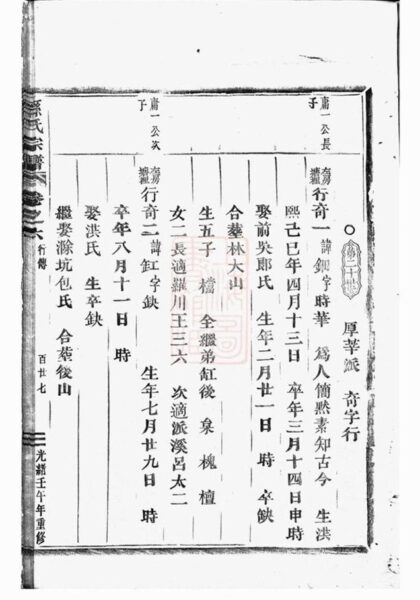 第二十世 厚莘派 奇字行
庸一公長子
行奇一 諱鈿 字時華 為人簡默素知古今 生洪
熙己巳年四月十三日 卒年三月十四日申時
娶前吳郎氏 生年二月廿一日 時 卒缺
合葬林大山
生五子 檣 全繼弟缸後 泉 槐 檀
女二長適羅川王三六 次適派溪呂太二
庸一公次子
行奇二 諱缸 字缺 生年七月廿九日 時
卒年八月十一日 時
娶洪氏 生卒缺
繼娶滁坑包氏 合葬後山
孫氏宗譜 卷之六 行傳 百廿七 光緒壬午年重修